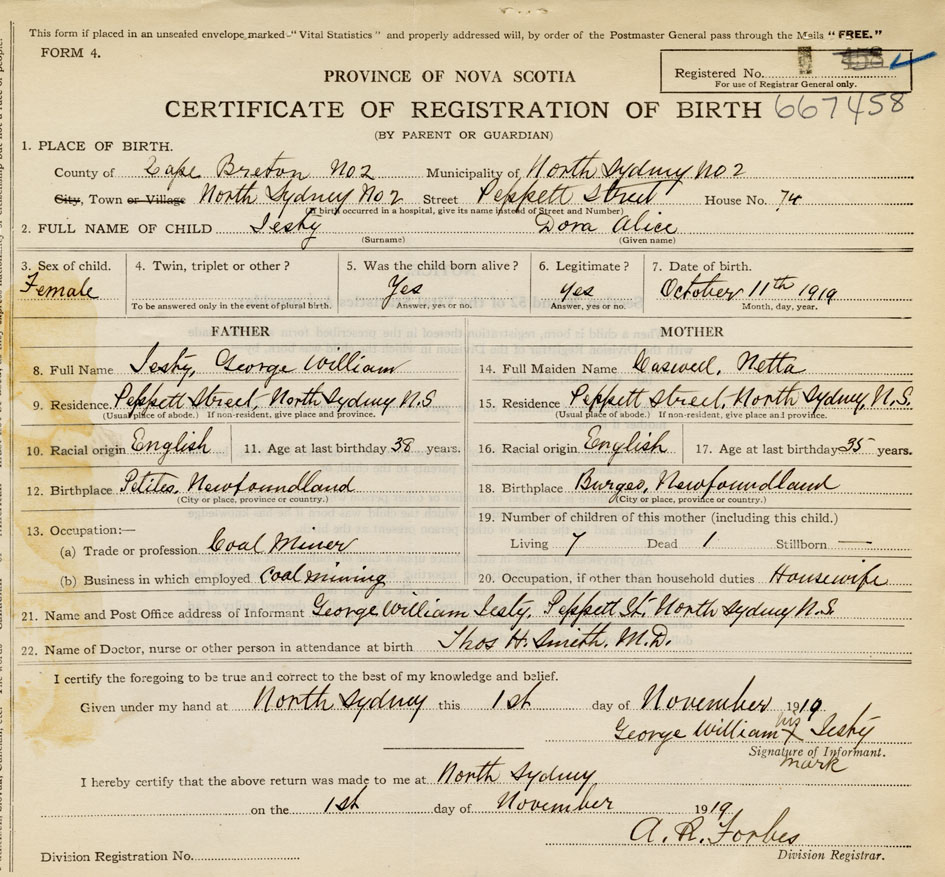 This form if placed in an unsealed envelope marked "Vital Statistics" and properly addressed will, by order of the Postmaster General pass through the Mails "FREE."
FORM 4.
Registered No. 458
For use of Registrar General only.
PROVINCE OF NOVA SCOTIA
CERTIFICATE OF REGISTRATION OF BIRTH 667458
(BY PARENT OR GUARDIAN)
1. PLACE OF BIRTH.
County of Cape Breton No 2 Municipality of North Sydney No 2
City, Town or Village North Sydney No 2 Street Peppett Street House No. 74
(If birth occurred in a hospital, give its name instead of Street and Number)
2. FULL NAME OF CHILD Iesty Dora Alice
(Surname) (Given name)
3. Sex of child. 4. Twin, triplet or other? 5. Was the child born alive? 6. Legitimate? 7. Date of birth.
Female Yes Yes October 11th 1919
To be answered only in the event of plural birth. Answer, yes or no. Answer, yes or no. Month, day, year.
FATHER MOTHER
8. Full Name Iesty, George William 14. Full Maiden Name Caswell, Netta
9. Residence. Peppett Street, North Sydney N.S 15. Residence Peppett Street, North Sydney, N.S.
(Usual place of abode.) If non-resident, give place and province. (Usual place of abode). If non-resident, give place and province.
10. Racial origin English 11. Age at last birthday 38 years. 16. Racial origin English 17. Age at last birthday 35 years.
12. Birthplace Petites, Newfoundland 18. Birthplace Burgeo, Newfoundland
(City or place, province or country.) (City or place, province or country.)
13. Occupation:— 19. Number of children of this mother (including this child.)
(a) Trade or profession Coal Miner Living 7 Dead 1 Stillborn —
(b) Business in which employed Coal mining 20. Occupation, if other than household duties Housewife
21. Name and Post Office address of Informant George William Iesty, Peppett St. North Sydney N.S
22. Name of Doctor, nurse or other person in attendance at birth Thos H. Smith, M.D.
I certify the foregoing to be true and correct to the best of my knowledge and belief.
Given under my hand at North Sydney this 1st day of November 1919
George William his X Iesty
Signature of Informant.
mark
I hereby certify that the above return was made to me at North Sydney
on the 1st day of November 1919
A. R. Forbes
Division Registration No. Division Registrar.